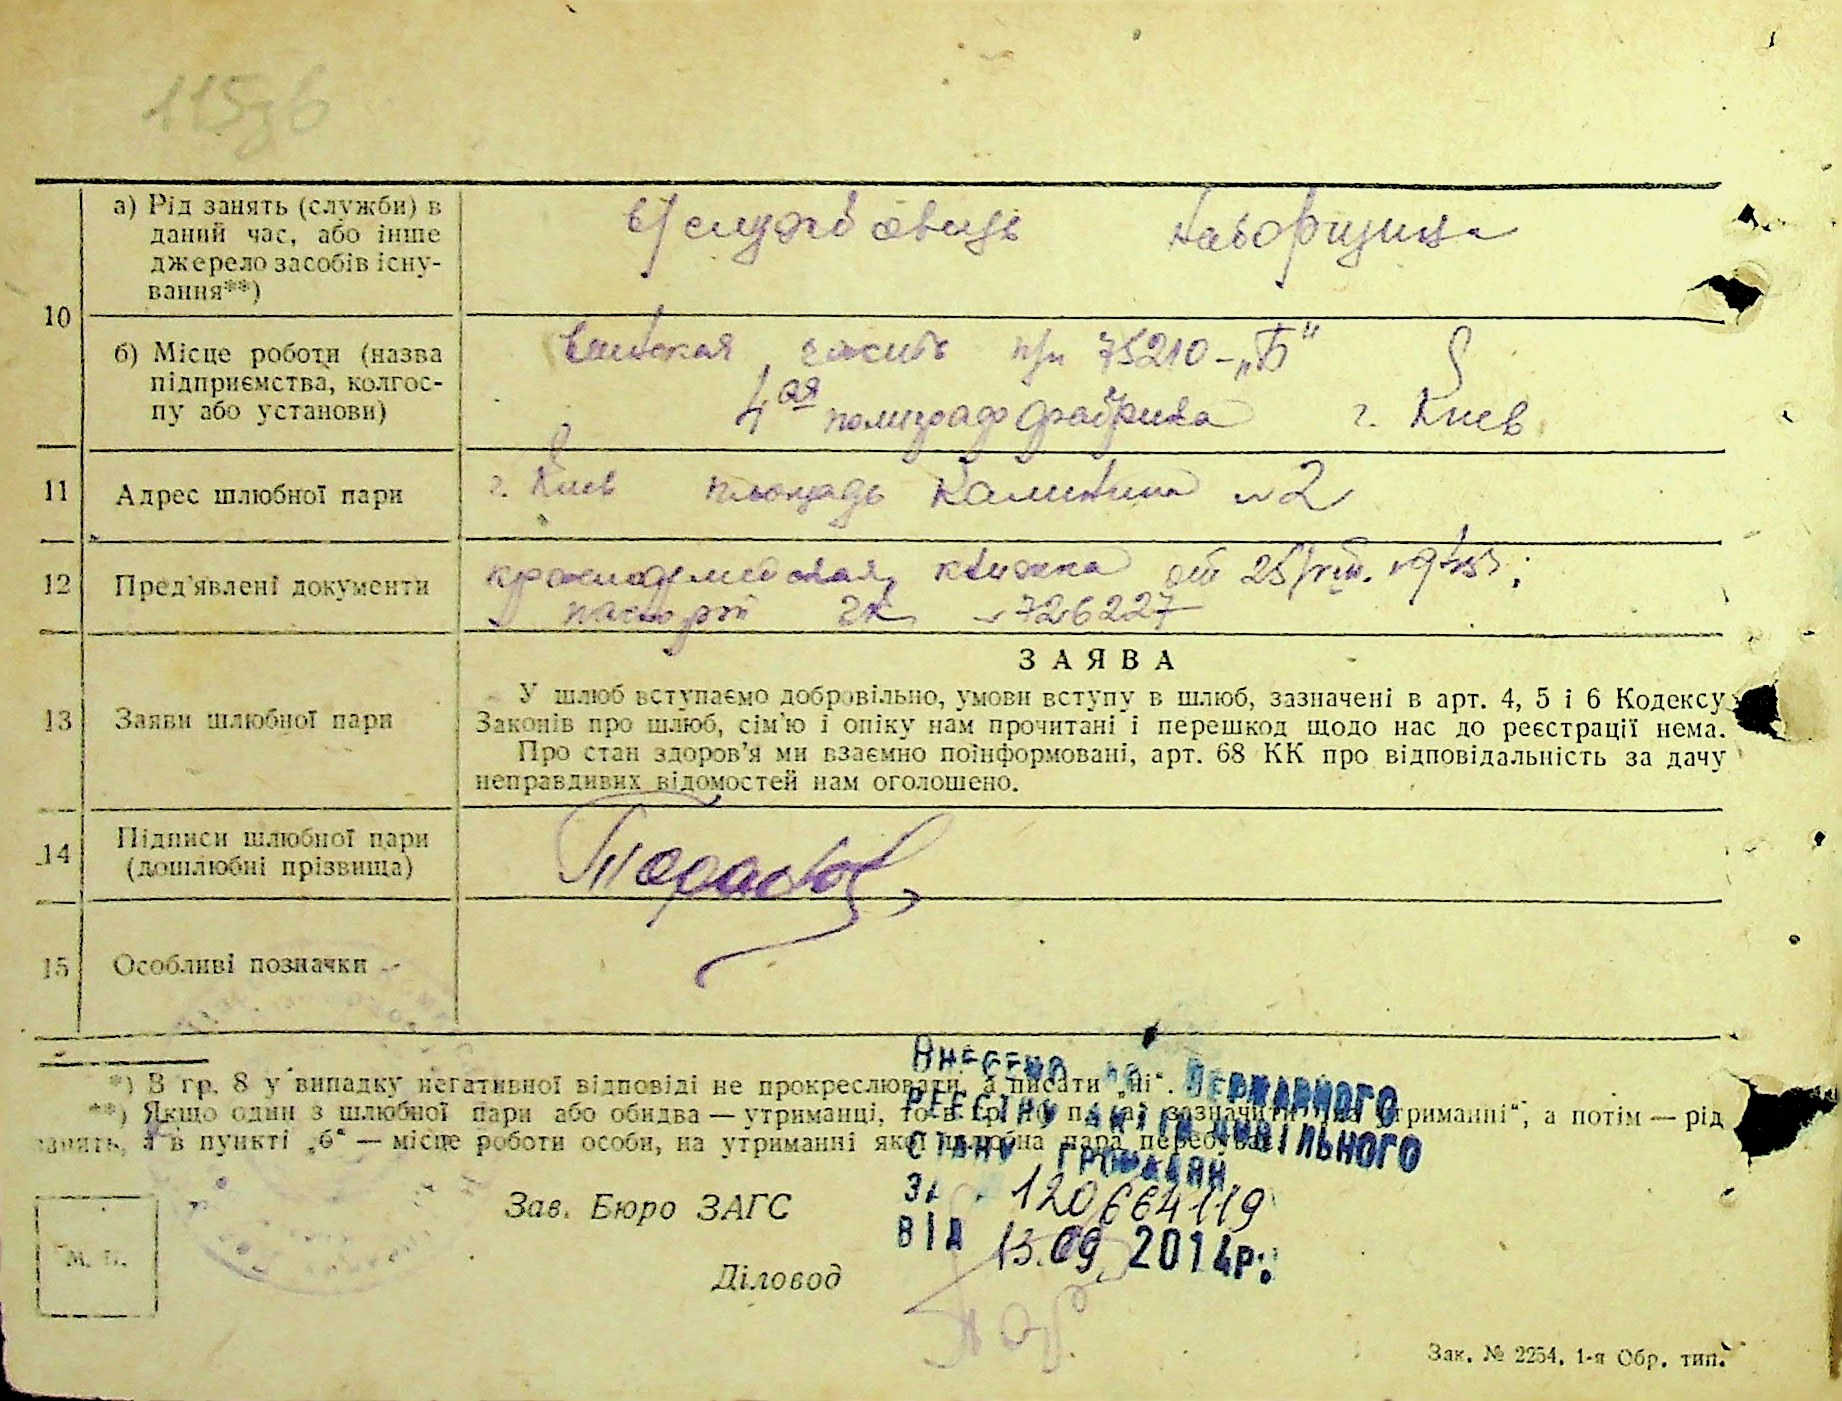 115зв
10
а) Рід занять (служби) в
даний час, або інше
джерело засобів існу-
вання**)
в/службовець наборщица
б) Місце роботи (назва
підприємства, колгос-
пу або установи)
часть п/п 75210-„Б“
4ая полиграффабрика г. Киев
11
Адрес шлюбної пари
г. Киев площадь Калинина №2
12
Пред'явлені документи
красноармейская книжка от 25/VIII.
паспорт 726227
13
Заяви шлюбної пари
ЗАЯВА
У шлюб вступаємо добровільно, умови вступу в шлюб, зазначені в арт. 4, 5 і 6 Кодексу
Законів про шлюб, сім'ю і опіку нам прочитані і перешкод щодо нас до реєстрації нема.
Про стан здоров'я ми взаємно поінформовані, арт. 68 КК про відповідальність за дачу
неправдивих відомостей нам оголошено.
14
Підписи шлюбної пари
(дошлюбні прізвища)
15
Особливі позначки
*) В гр. 8 у випадку негативної відповіді не прокреслювати, а писати „ні“.
**) Якщо один з шлюбної пари або обидва — утриманці, то в гр. 10 п. „а“ зазначити „на утриманні“, а потім — рід
занять, а в пункті „б“ — місце роботи особи, на утриманні якої шлюбна пара перебуває.
ВНЕСЕНО ДО ДЕРЖАВНОГО
РЕЄСТРУ АКТІВ ЦИВІЛЬНОГО
СТАНУ ГРОМАДЯН
ЗА 120664119
ВІД 13.09. 2014р.
Зав. Бюро ЗАГС
Діловод
М. П.
Зак. № 2254. 1-я Обр. тип.